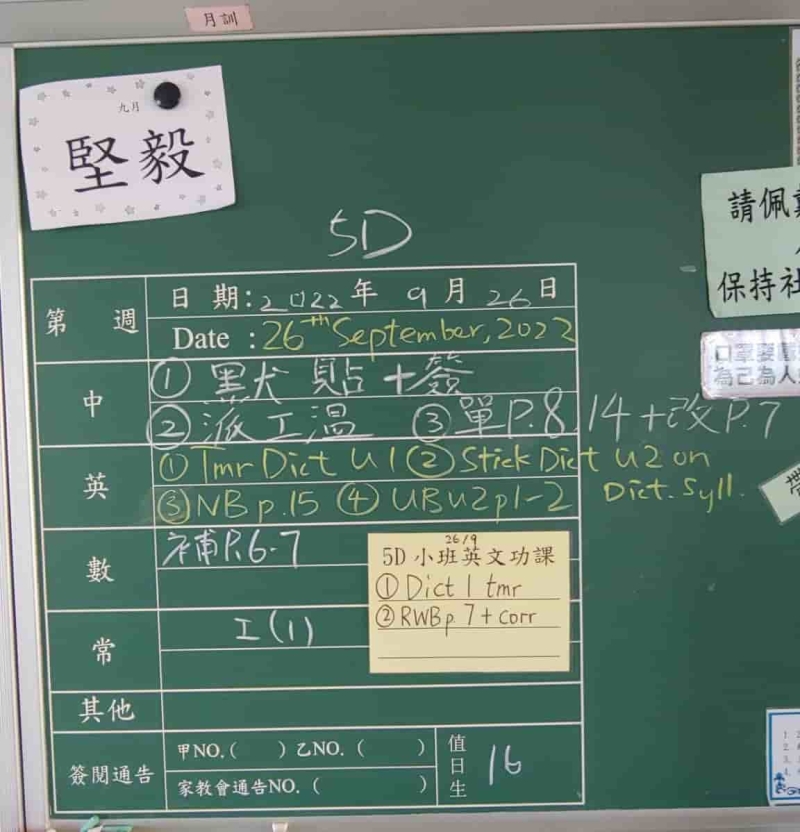 月訓
九月
堅毅
5D
第 週
日期:2022年9月26日
Date :26th September, 2022
中
① 黑犬 貼+簽
② 派工溫 ③ 單P.8,14+改P.7
英
① Tmr Dict U1 ② Stick Dict U2 on Dict. Syll.
③ NB p.15 ④ UB U2 p1-2
數
補P.6-7
26/9
5D 小班英文功課
① Dict 1 tmr
② RWB p. 7 + corr
常
工(1)
其他
簽閱通告
甲NO.( ) 乙NO. ( )
家教會通告NO. ( )
值日生
16
請佩
保持社
為己為人